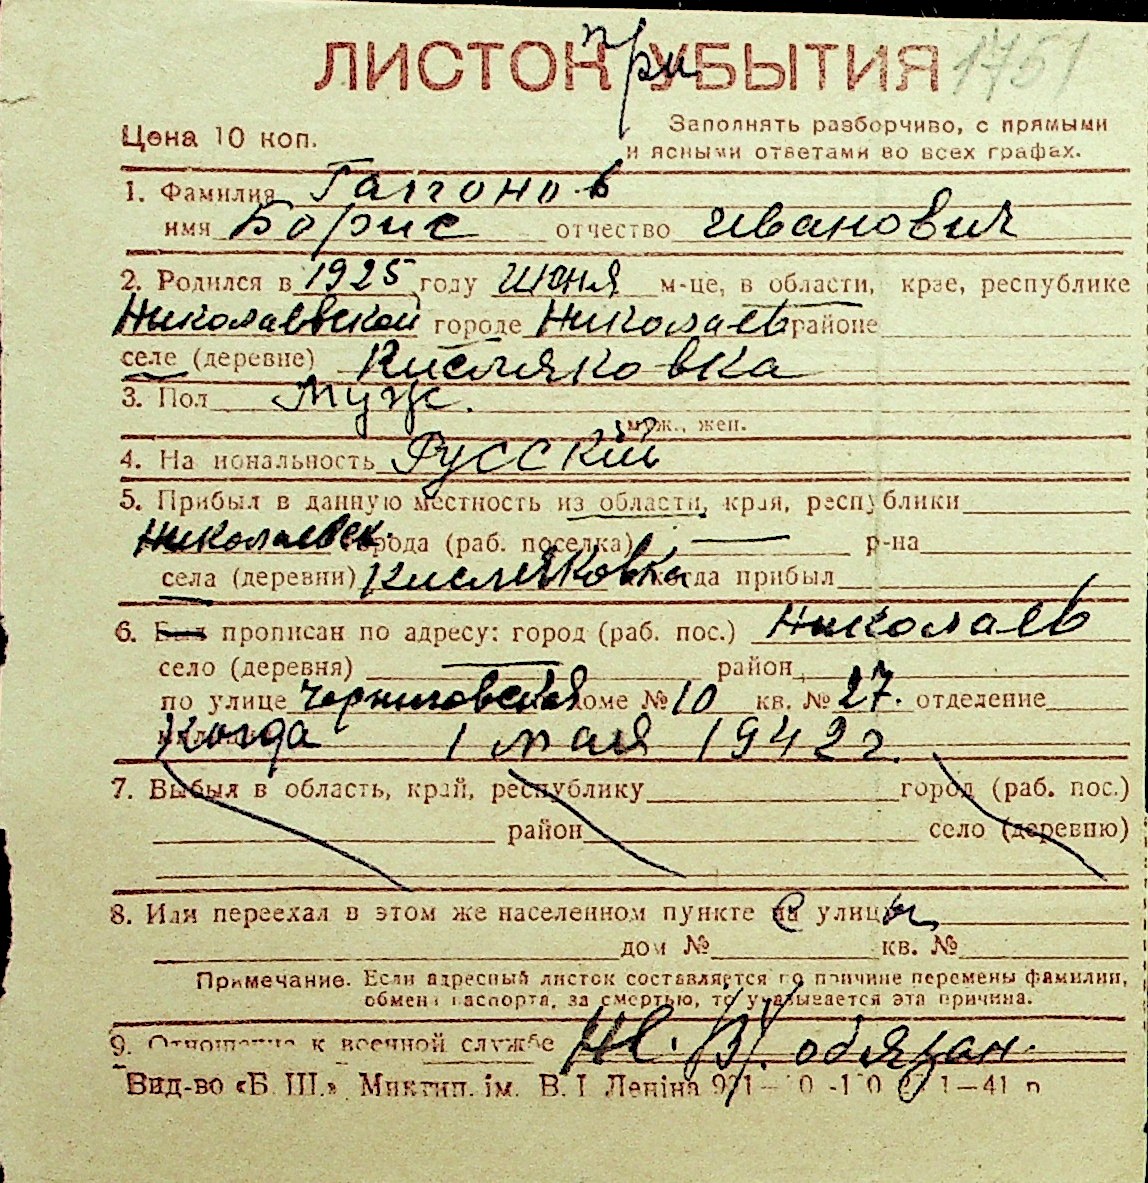 ЛИСТОК При УБЫТИЯ 1751
Цена 10 коп.
Заполнять разборчиво, с прямыми
и ясными ответами во всех графах.
1. Фамилия
имя Борис отчество Иванович
2. Родился в 1925 году июня м-це, в области, крае, республике
Николаевской городе Николаев районе
селе (деревне) Кисляковка
3. Пол муж.
муж., жен.
4. На иональность Русский
5. Прибыл в данную местность из области, края, республики
Николаевск. города (раб. поселка) р-на
села (деревни) Кисляковка когда прибыл
6. Был прописан по адресу: город (раб. пос.) Николаев
село (деревня) район
по улице Черниговская доме № 10 кв. № 27. отделение
Когда 1 мая 1942 г.
7. Выбыл в область, край, республику город (раб. пос.)
район село (деревню)
8. Или переехал в этом же населенном пункте с улицы
дом № кв. №
Примечание. Если адресный листок составляется по причине перемены фамилии,
обмена паспорта, за смертью, то указывается эта причина.
9. Отношение к военной службе обязан.
Вид-во «Б. Ш.» Миктип. ім. В. І. Леніна